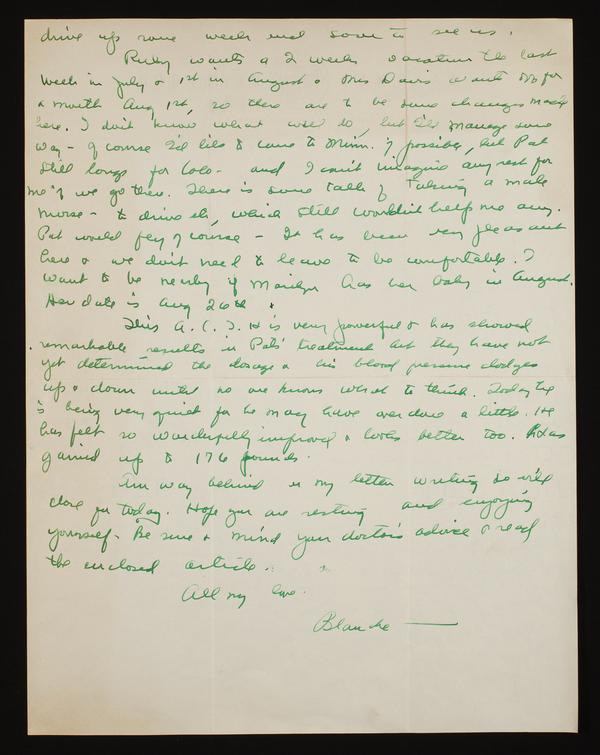 drive up some week end soon to see us.
Ruby wants a 2 weeks vacation the last
week in July & 1st in August & Mrs Davis wants off for
a month Aug 1st, so there are to be some changes made
here. I don't know what will do, but I'll manage some
way - of course I'd like to come to Minn. if possible, but Pat
still longs for Colo - and I can't imagine any rest for
me if we go there. There is some talk of taking a male
nurse - to drive etc, which still wouldn't help me any.
Pat would fly of course - It has been very pleasant
here & we don't need to leave to be comfortable. I
want to be nearby if Marilyn has her baby in August.
Her date is Aug 26th
This A.C.T.H is very powerful & has showed
remarkable results in Pat's treatment but they have not
yet determined the dosage & his blood pressure dodges
up & down until no one knows what to think. Today he
is being very quiet for he may have overdone a little. He
has felt so wonderfully improved & looks better too. Has
gained up to 176 pounds.
Am way behind in my letter writing so will
close for today. Hope you are resting and enjoying
yourself - Be sure & mind your doctor's advice & read
the enclosed article.
All my love.
Blanche